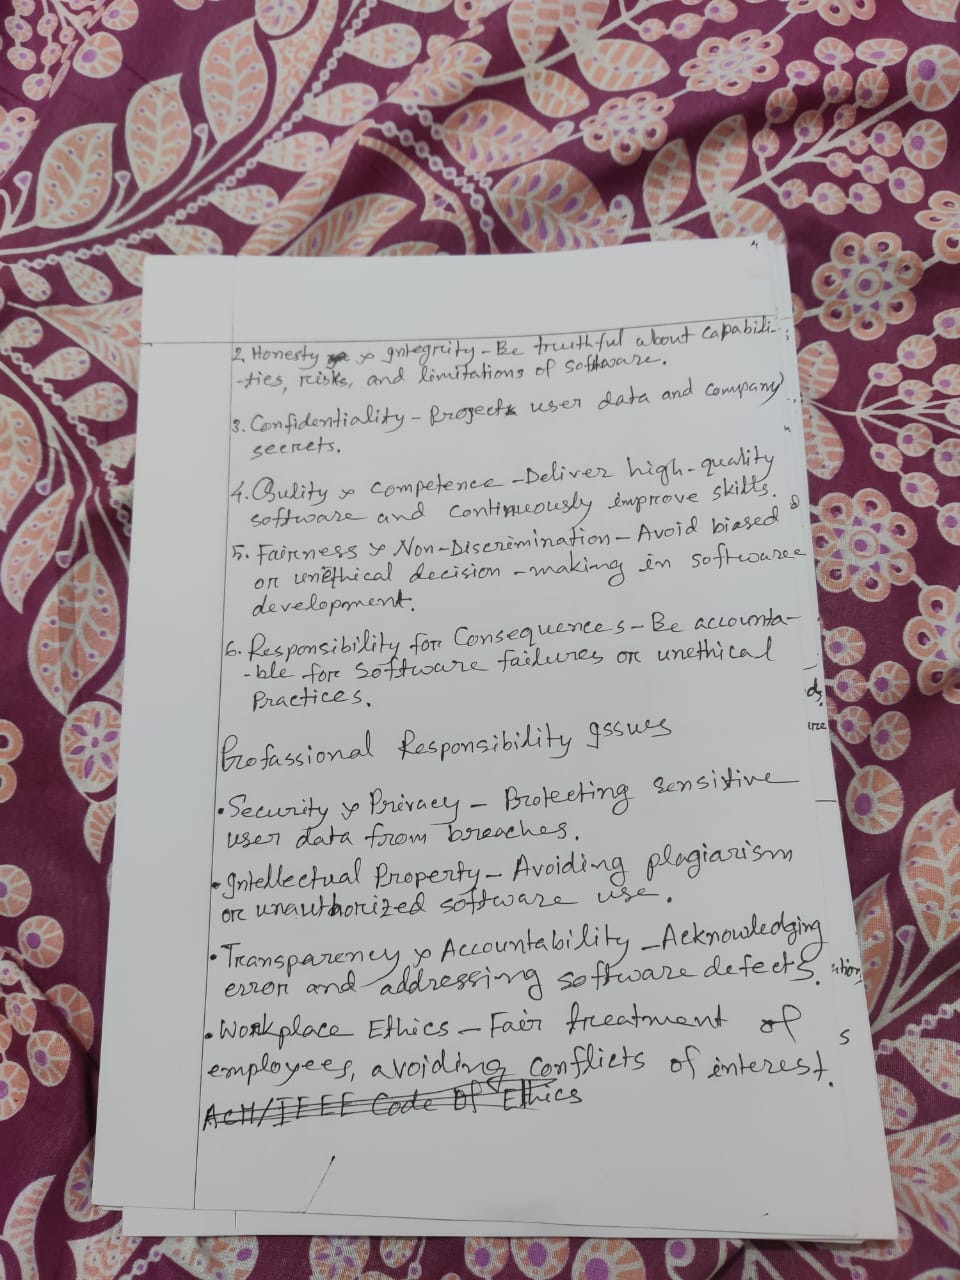 2. Honesty & Integrity - Be truithful about capabili-
-ties, risks, and limitations of software.
3. Confidentiality - Project user data and company
secrets.
4. Qulity & Competence - Deliver high-quality
software and continuously improve skills.
5. Fairness & Non-Discrimination - Avoid biased
or unethical decision-making in software
development.
6. Responsibility for Consequences - Be accounta-
-ble for software failures or unethical
Practices.
Profassional Responsibility Issues
• Security & Privacy - Protecting sensitive
user data from breaches.
• Intellectual Property - Avoiding plagiarism
or unauthorized software use.
• Transparency & Accountability - Acknowledging
error and addressing software defects.
• Workplace Ethics - Fair treatment of
employees, avoiding conflicts of interest.
ACM/IEEE Code Of Ethics